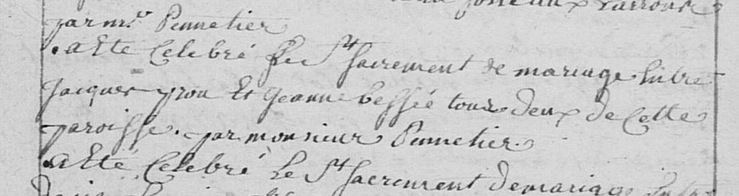 par mr. Pennetier
a Eté Celebré Le St sacrement de mariage Entre
Jacques pron Et Jeanne bessée tous deux de Cette
paroisse. par monsieur Pennetier.
a Eté Celebré Le St sacrement de mariage Entre